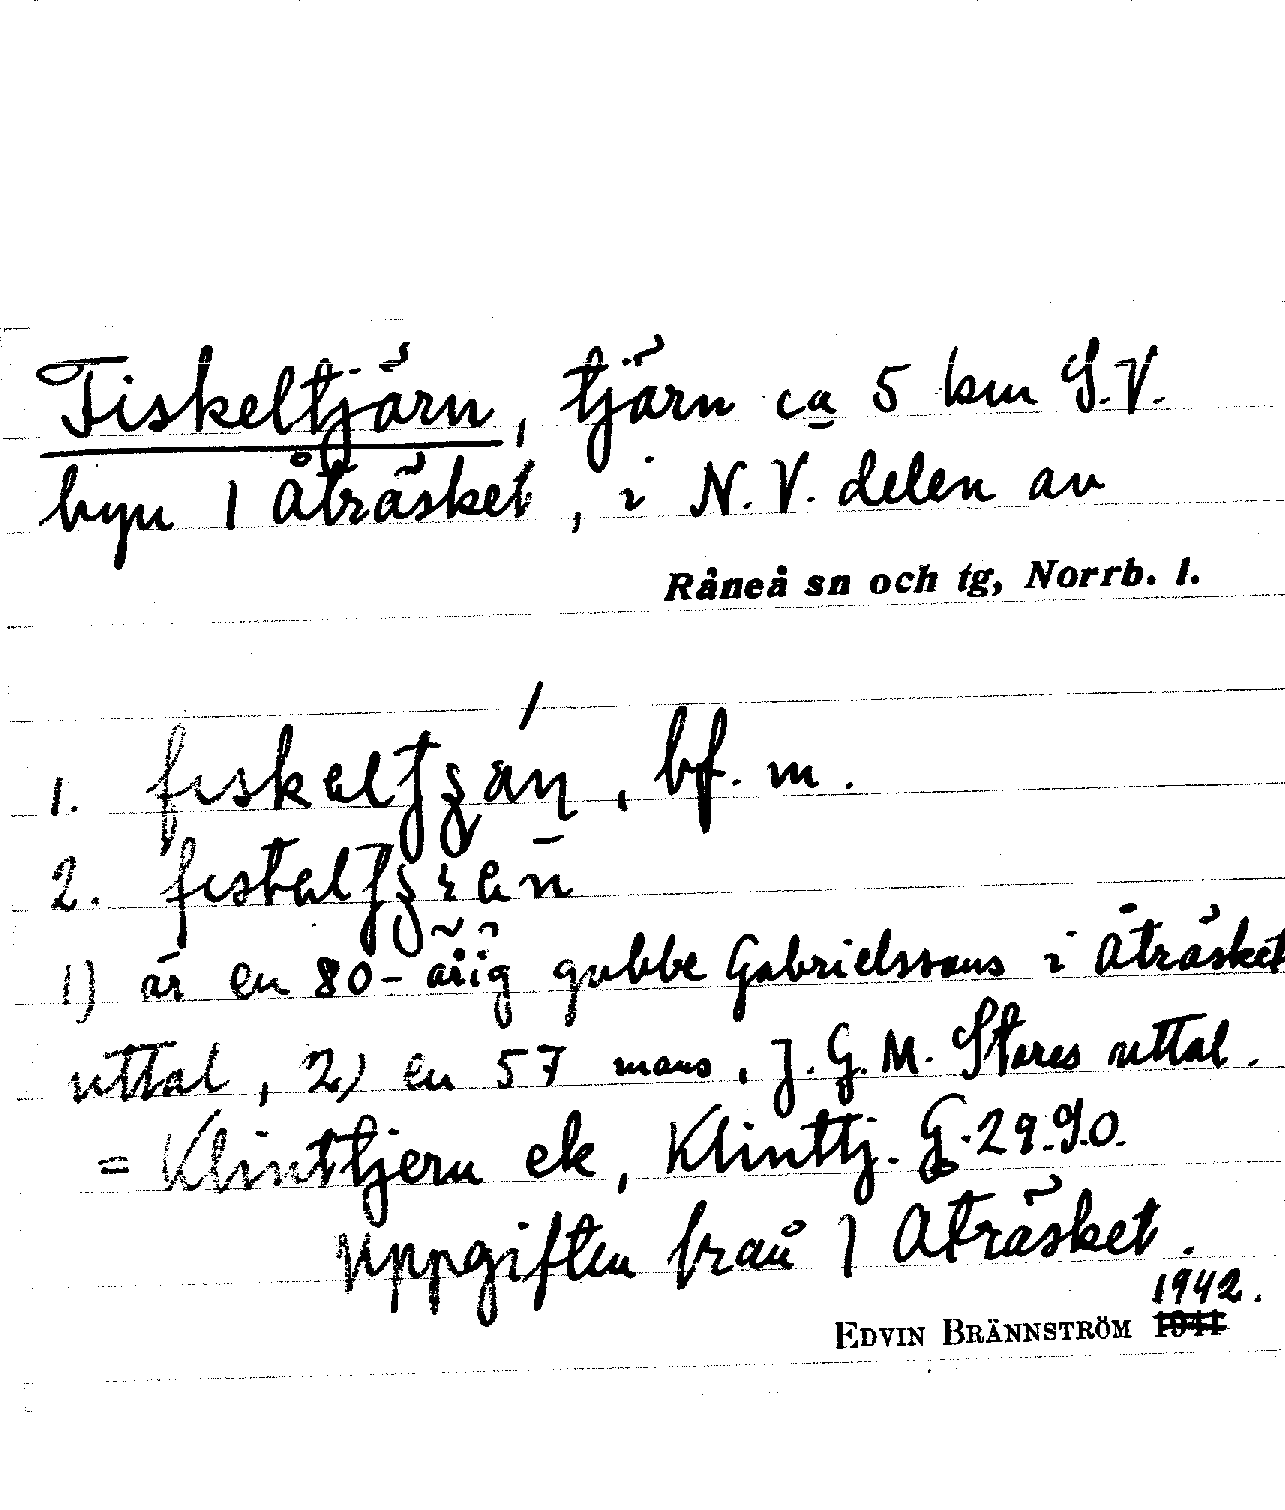 Fiskeltjärn, tjärn ca 5 km S.V.
byn 1 Åträsket, i N.V. delen av
Råneå sn och tg, Norrb. l.
1. bf. m.
2.
1) är en 80-årig gubbe Gabrielssons i Åträsket
uttal, 2) en 57 mans, J. G. M. Steres uttal.
= Klinttjern ek, Klinttj. G. 29.9.0.
Uppgiften från 1 Åträsket.
1942.
EDVIN BRÄNNSTRÖM 1941